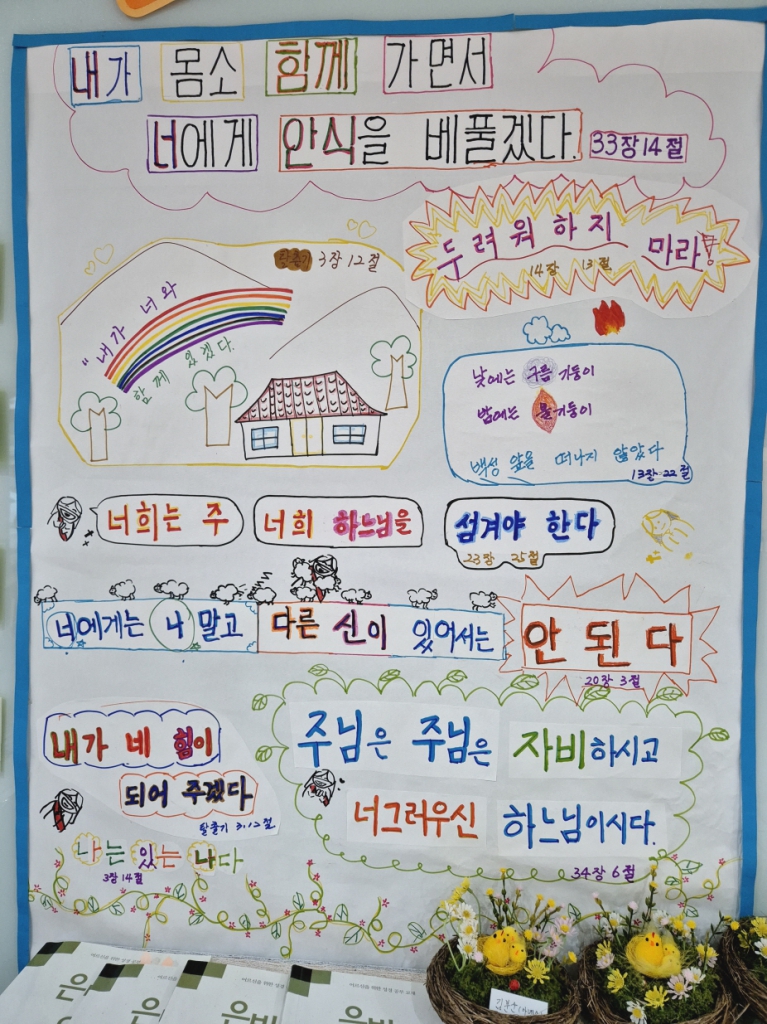 내가 몸소 함께 가면서
너에게 안식을 베풀겠다. 33장14절
두려워하지 마라!
14장 13절
탈출기 3장12절
"내가 너와
함께 있겠다.
낮에는 구름 기둥이
밤에는 불기둥이
백성 앞을 떠나지 않았다
13장 22절
너희는 주 너희 하느님을 섬겨야 한다
23장 25절
너에게는 나 말고 다른 신이 있어서는 안 된 다
20장 3절
내가 네 힘이
되어 주겠다
탈출기 3.12절
나는 있는 나다
3장 14절
주님은 주님은 자비하시고
너그러우신 하느님이시다.
34장 6절